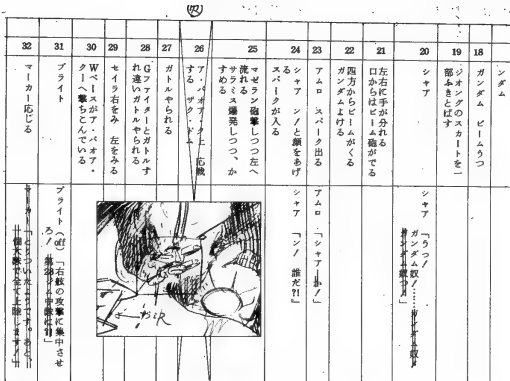 ンダム
18
ガンダム ビームうつ
19
ジオングのスカートを一
部ふきとばす
20
シャア
シャア 「うっ!
ガンダム奴!
21
左右に手が分れる
口からはビーム砲がでる
22
四方からビームがくる
ガンダムよける
23
アムロ スパーク出る
アムロ 「シャアか!」
24
シャア ン!と顔をあげ
る
スパークが入る
シャア 「ン! 誰だ?!」
25
マゼラン砲撃しつつ左へ
流れる
サラミス爆発しつつ、か
すめる
26
ア・バオア・ク上 応戦
する ザク・ドム
27
ガトルやられる
28
Gファイターとガトルす
れ違いガトルやられる
29
セイラ右をみ 左をみる
30
Wベースがア・バオア・
クーへ撃ちこんでいる
31
ブライト
ブライト(off)「右舷の攻撃に集中させ
ろ!
32
マーカー応じる